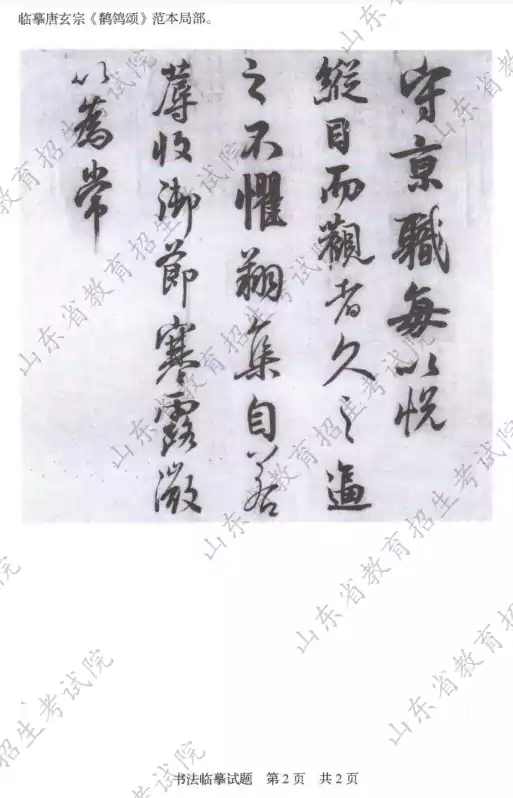 临摹唐玄宗《鹡鸰颂》范本局部。
守京職每以悅
縱目而觀者久之逼
之不懼翔集自若
蓐收御節寒露微
以為常
书法临摹试题 第2页 共2页
山东省教育招生考试院